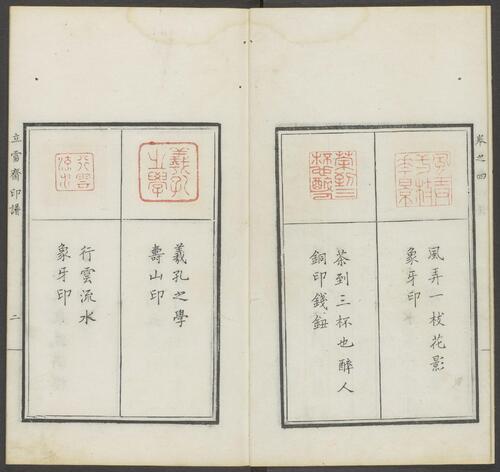 卷之四
風弄一枝花影
象牙印
茶到三杯也醉人
銅印錢鈕
羲孔之學
羲孔之學
壽山印
行雲流水
行雲流水
象牙印
立雪齋印譜
二